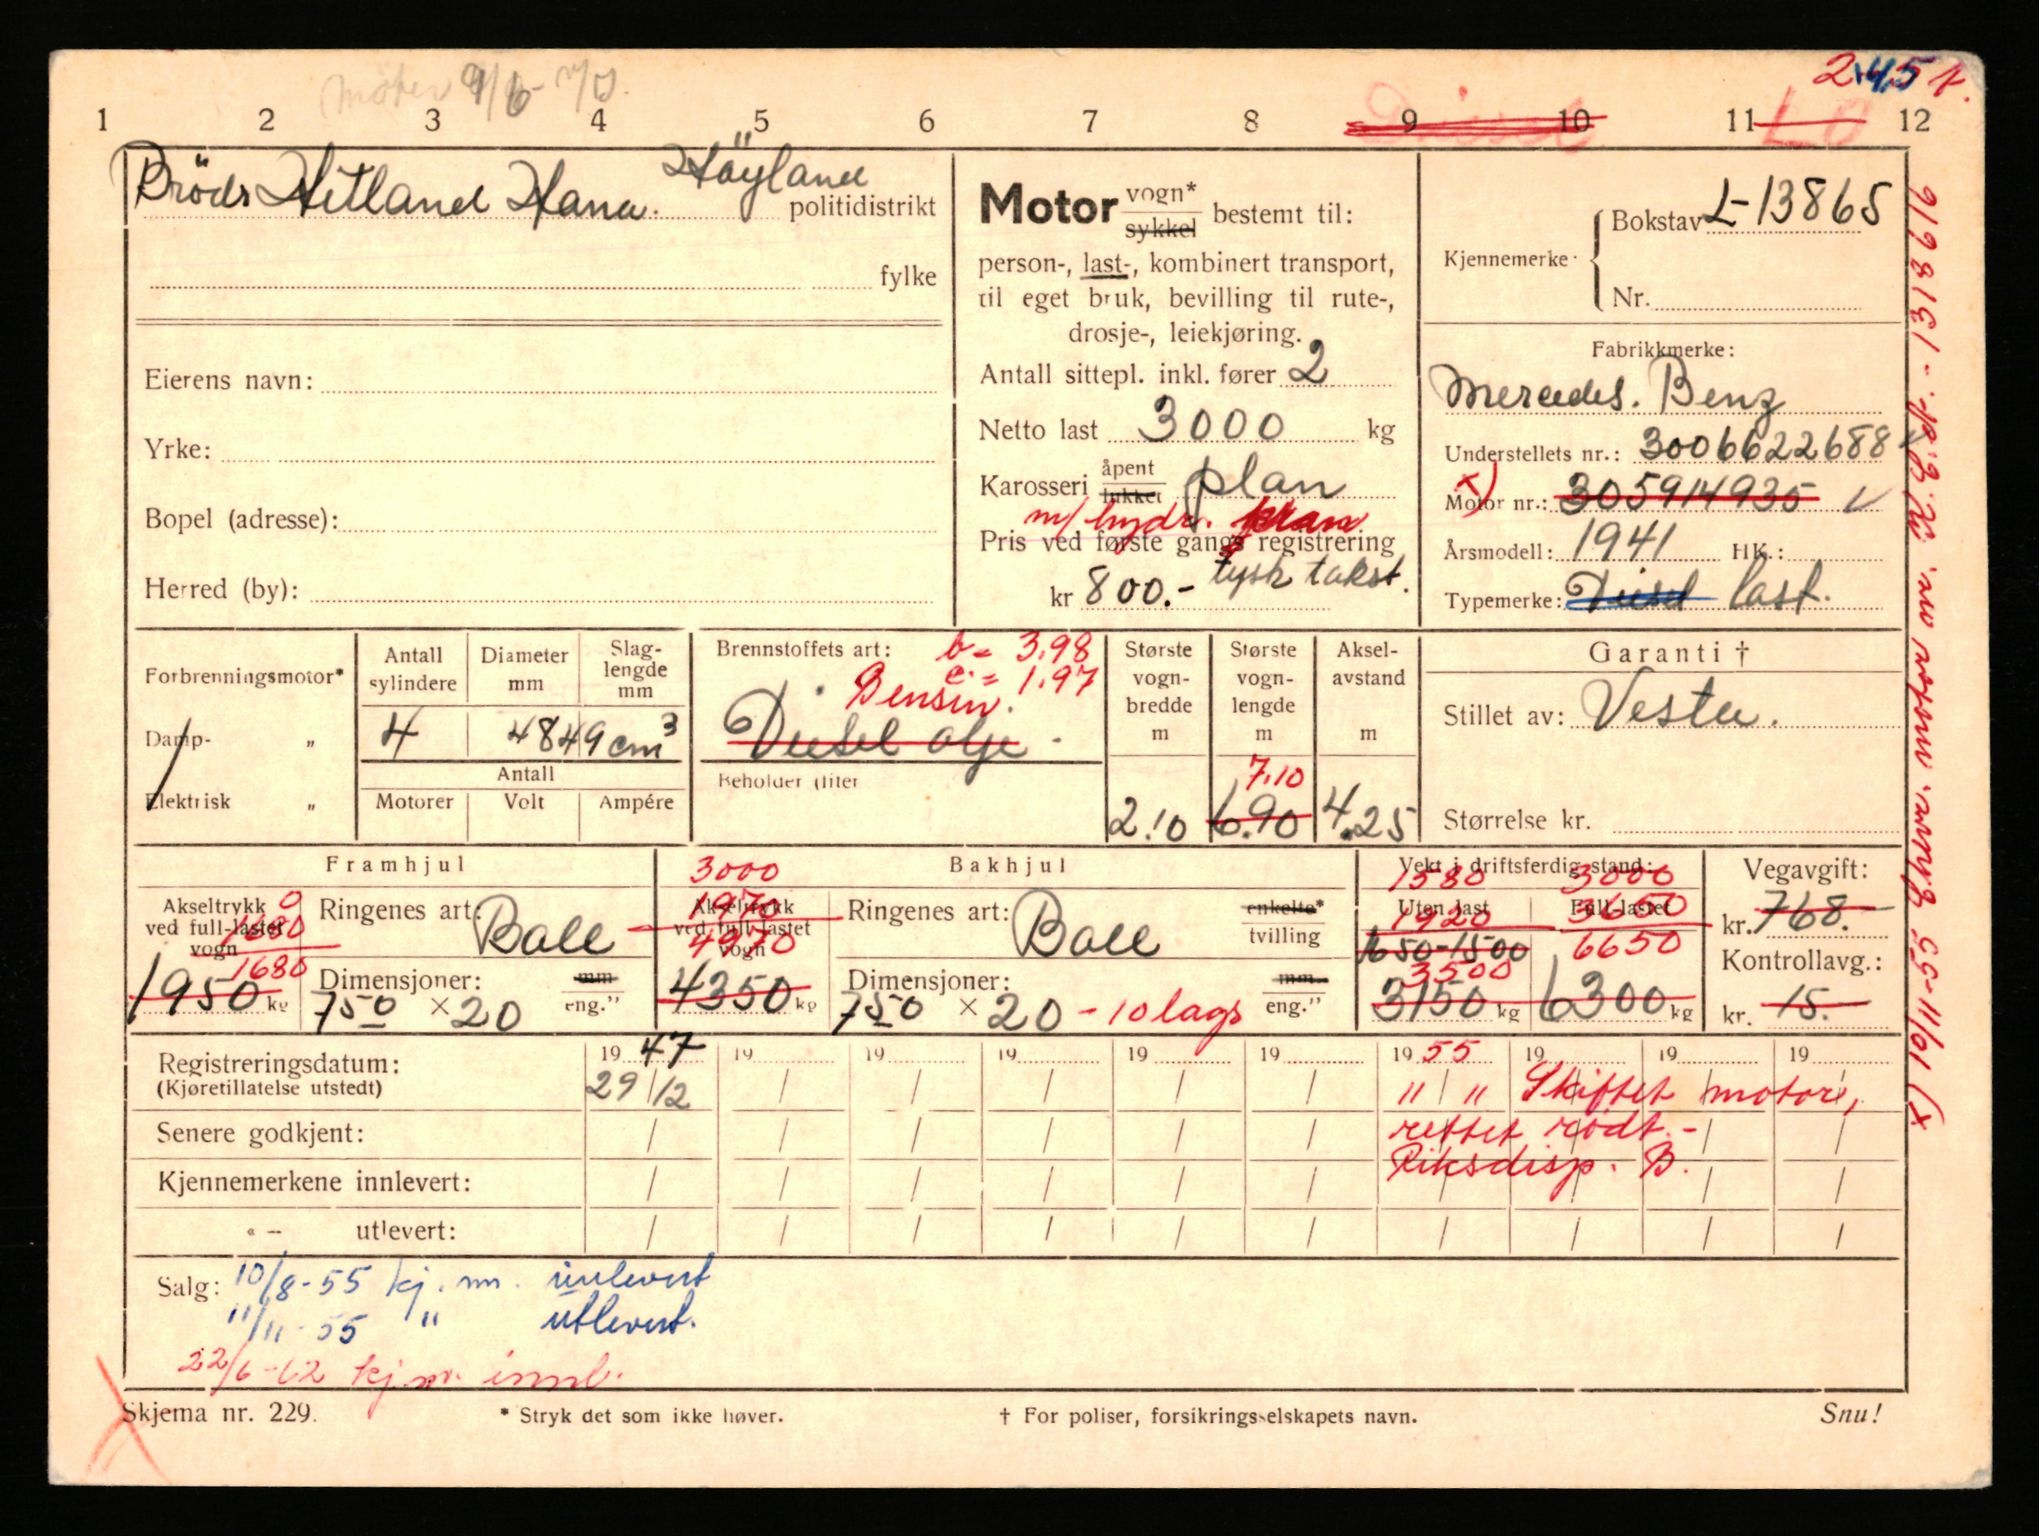 2.45 t.
1 2 3 4 5 6 7 8 9 10 11 12
Brödr Hetland Hana. Höyland politidistrikt
fylke
Eierens navn:
Yrke:
Bopel (adresse):
Herred (by):
Motor vogn* sykkel bestemt til:
person-, last-, kombinert transport,
til eget bruk, bevilling til rute-,
drosje-, leiekjøring.
Antall sittepl. inkl. fører 2
Netto last 3000 kg
Karosseri åpent lukket plan
m/ hydr. kran
Pris ved første gangs registrering
kr 800.- tysk takst.
Kjennemerke
Bokstav L-13865
Nr.
Fabrikkmerke:
Mercedes. Benz
Understellets nr.: 3006622688
x) Motor nr.: 305914935
Årsmodell: 1941 HK.:
Typemerke: Diesel last.
Forbrenningsmotor*
Damp- „
Elektrisk „
Antall sylindere
Diameter mm
Slag-lengde mm
4 4849 cm3
Antall
Motorer Volt Ampére
Brennstoffets art: b = 3.98
c. = 1.97
Bensin.
Diesel olje -
Beholder (liter
Største vogn-bredde m
2.10
Største vogn-lengde m
7.10
6.90
Aksel-avstand m
4.25
Garanti †
Stillet av: Vesta.
Størrelse kr.
Framhjul
Akseltrykk ved full-lastet vogn
0
1680
1680
1950 kg
Ringenes art: Ball
Dimensjoner: mm eng."
750 × 20
Bakhjul
3000
1970
Akseltrykk ved full-lastet vogn
4970
4350 kg
Ringenes art: Ball enkelte* tvilling
Dimensjoner: mm. eng."
750 × 20 - 10 lags
Vekt i driftsferdig stand:
1580 3000
Uten last Full-lastet
1920 3650
1650-1500 6650
3500
3150 kg 6300 kg
Vegavgift:
kr. 768.
Kontrollavg.:
kr. 15.
Registreringsdatum: 19 47 19 19 19 19 19 19 55 19 19 19
(Kjøretillatelse utstedt) 29/12 / / / / / " / " Skiftet motor,
Senere godkjent: rettet rødt. -
Kjennemerkene innlevert: Riksdisp. B.
« – utlevert:
Salg: 10/8-55 kj. m. innlevert
11/11-55 " utlevert.
22/6-62 kj.m. innl.
Skjema nr. 229.
* Stryk det som ikke høver.
† For poliser, forsikringsselskapets navn.
Snu!